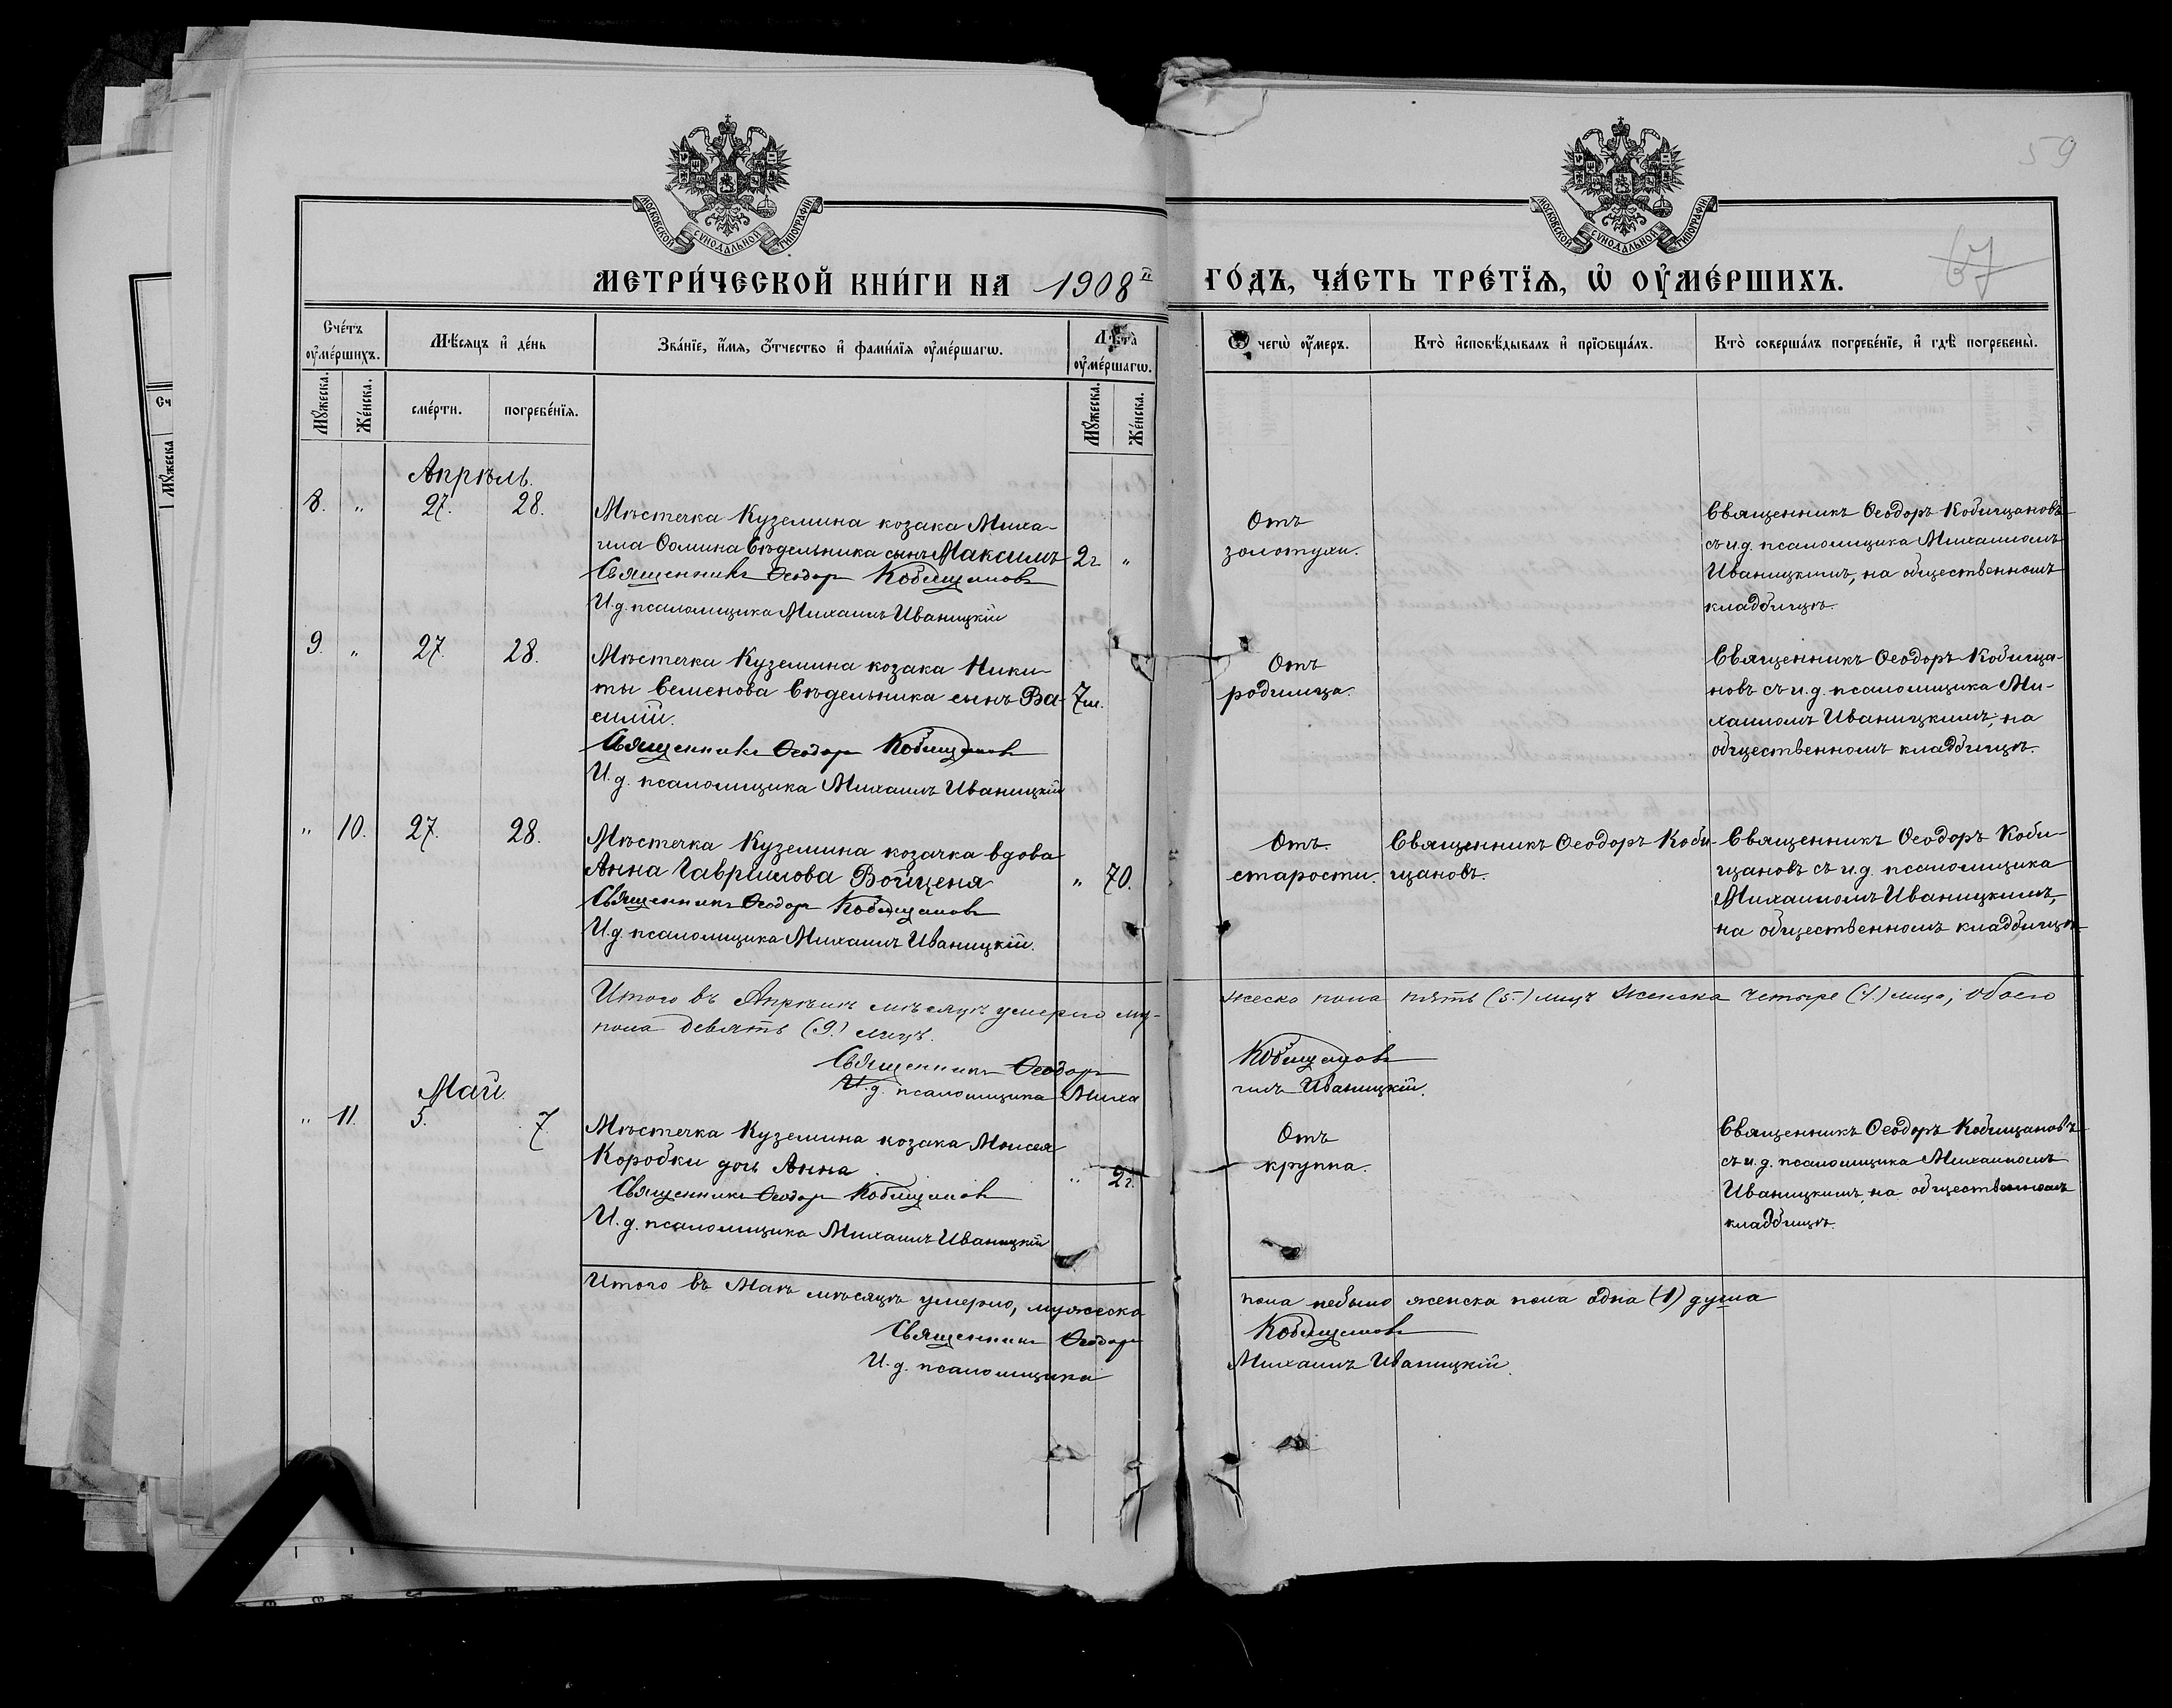 59
67
МОСКОВСКОЙ СѴНОДАЛЬНОЙ ТИПОГРАФІИ
МОСКОВСКОЙ СѴНОДАЛЬНОЙ ТИПОГРАФІИ
МЕТРИ́ЧЕСКОЙ КНИ́ГИ НА 1908й ГО́ДЪ, ЧА́СТЬ ТРЕ́ТЇѦ, Ѡ҆ ОУ҆МЕ́РШИХЪ.
Сче́тъ оу҆ме́ршихъ.
Мѣ́сяцъ и҆ де́нь
Зва́нїе, и҆́мѧ, ѻ҆́тчество и҆ фами́лїѧ оу҆ме́ршагѡ.
Лѣ́та оу҆ме́ршагѡ.
Ѿ чегѡ̀ оу҆́меръ.
Кто̀ и҆сповѣ́дывалъ и҆ прїѡбща́лъ.
Кто̀ соверша́лъ погребе́нїе, и҆ гдѣ̀ погребены̀.
Мꙋ́жеска.
Же́нска.
сме́рти.
погребе́нїѧ.
Мꙋ́жеска.
Же́нска.
Сч
Мꙋ́жеска
Апрѣль.
8. " 27. 28.
Мѣстечка Куземина козака Миха-
ила Ѳомина Сѣдельника сынъ Максимъ 2г. "
Священникъ Ѳеодоръ Кобищановъ
И.д. псаломщика Михаилъ Иваницкій
Отъ
золотухи.
Священникъ Ѳеодоръ Кобищановъ
съ и.д. псаломщика Михаиломъ
Иваницкимъ, на общественномъ
кладбищѣ.
9. " 27. 28.
Мѣстечка Куземина козака Ники-
ты Семенова Сѣдельника сынъ Ва- 7м.
силій.
Священникъ Ѳеодоръ Кобищановъ
И.д. псаломщика Михаилъ Иваницкій
Отъ
родимца.
Священникъ Ѳеодоръ Кобища-
новъ съ и.д. псаломщика Ми-
хаиломъ Иваницкимъ, на
общественномъ кладбищѣ.
" 10. 27. 28.
Мѣстечка Куземина козачка вдова
Анна Гаврилова Войценя " 70.
Священникъ Ѳеодоръ Кобищановъ
И.д. псаломщика Михаилъ Иваницкій.
Отъ
старости.
Священникъ Ѳеодоръ Коби-
щановъ.
Священникъ Ѳеодоръ Коби-
щановъ съ и.д. псаломщика
Михаиломъ Иваницкимъ,
на общественномъ кладбищѣ
Итого въ Апрѣлѣ мѣсяцѣ умерло му-жеска пола пять (5.) лицъ женска четыре (4.) лица, обоего
пола девять (9.) лицъ.
Священникъ Ѳеодоръ Кобищановъ
И.д. псаломщика Михаилъ Иваницкій.
Май.
" 11. 5. 7.
Мѣстечка Куземина козака Моисея
Коробки дочь Анна " 2г.
Священникъ Ѳеодоръ Кобищановъ
И.д. псаломщика Михаилъ Иваницкій
Отъ
круппа.
Священникъ Ѳеодоръ Кобищановъ
съ и.д. псаломщика Михаиломъ
Иваницкимъ, на общественномъ
кладбищѣ.
Итого въ Маѣ мѣсяцѣ умерло, мужеска пола небыло женска пола одна (1) душа
Священникъ Ѳеодоръ Кобищановъ
И.д. псаломщика Михаилъ Иваницкій.